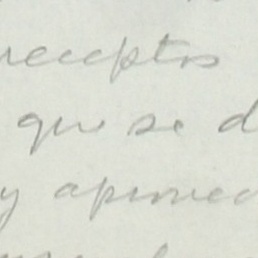 receptos
que se d
y aprovec